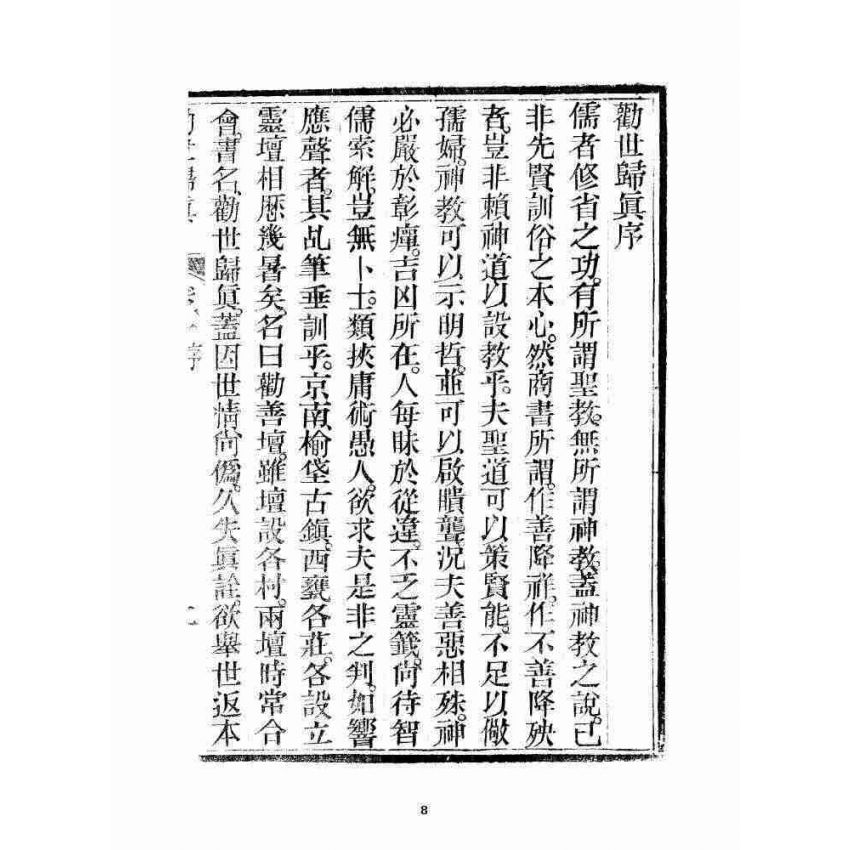 勸世歸眞序
儒者修省之功。有所謂聖教。無所謂神教。蓋神教之說。已
非先賢訓俗之本心。然商書所謂。作善降祥。作不善降殃
者。豈非賴神道以設教乎。夫聖道可以策賢能。不足以儆
孺婦。神教可以示明哲。並可以啟聵聾。況夫善惡相殊。神
必嚴於彰癉。吉凶所在。人每昧於從違。不乏靈籤。尙待智
儒索解。豈無卜士。類挾庸術愚人。欲求夫是非之判。如響
應聲者。其乩筆垂訓乎。京南榆垡古鎮。西甕各莊。各設立
靈壇相歷幾暑矣。名曰勸善壇。雖壇設各村。兩壇時常合
會。書名勸世歸眞。蓋因世情尙僞。久失眞詮。欲舉世返本
勸世歸眞 序 一
8